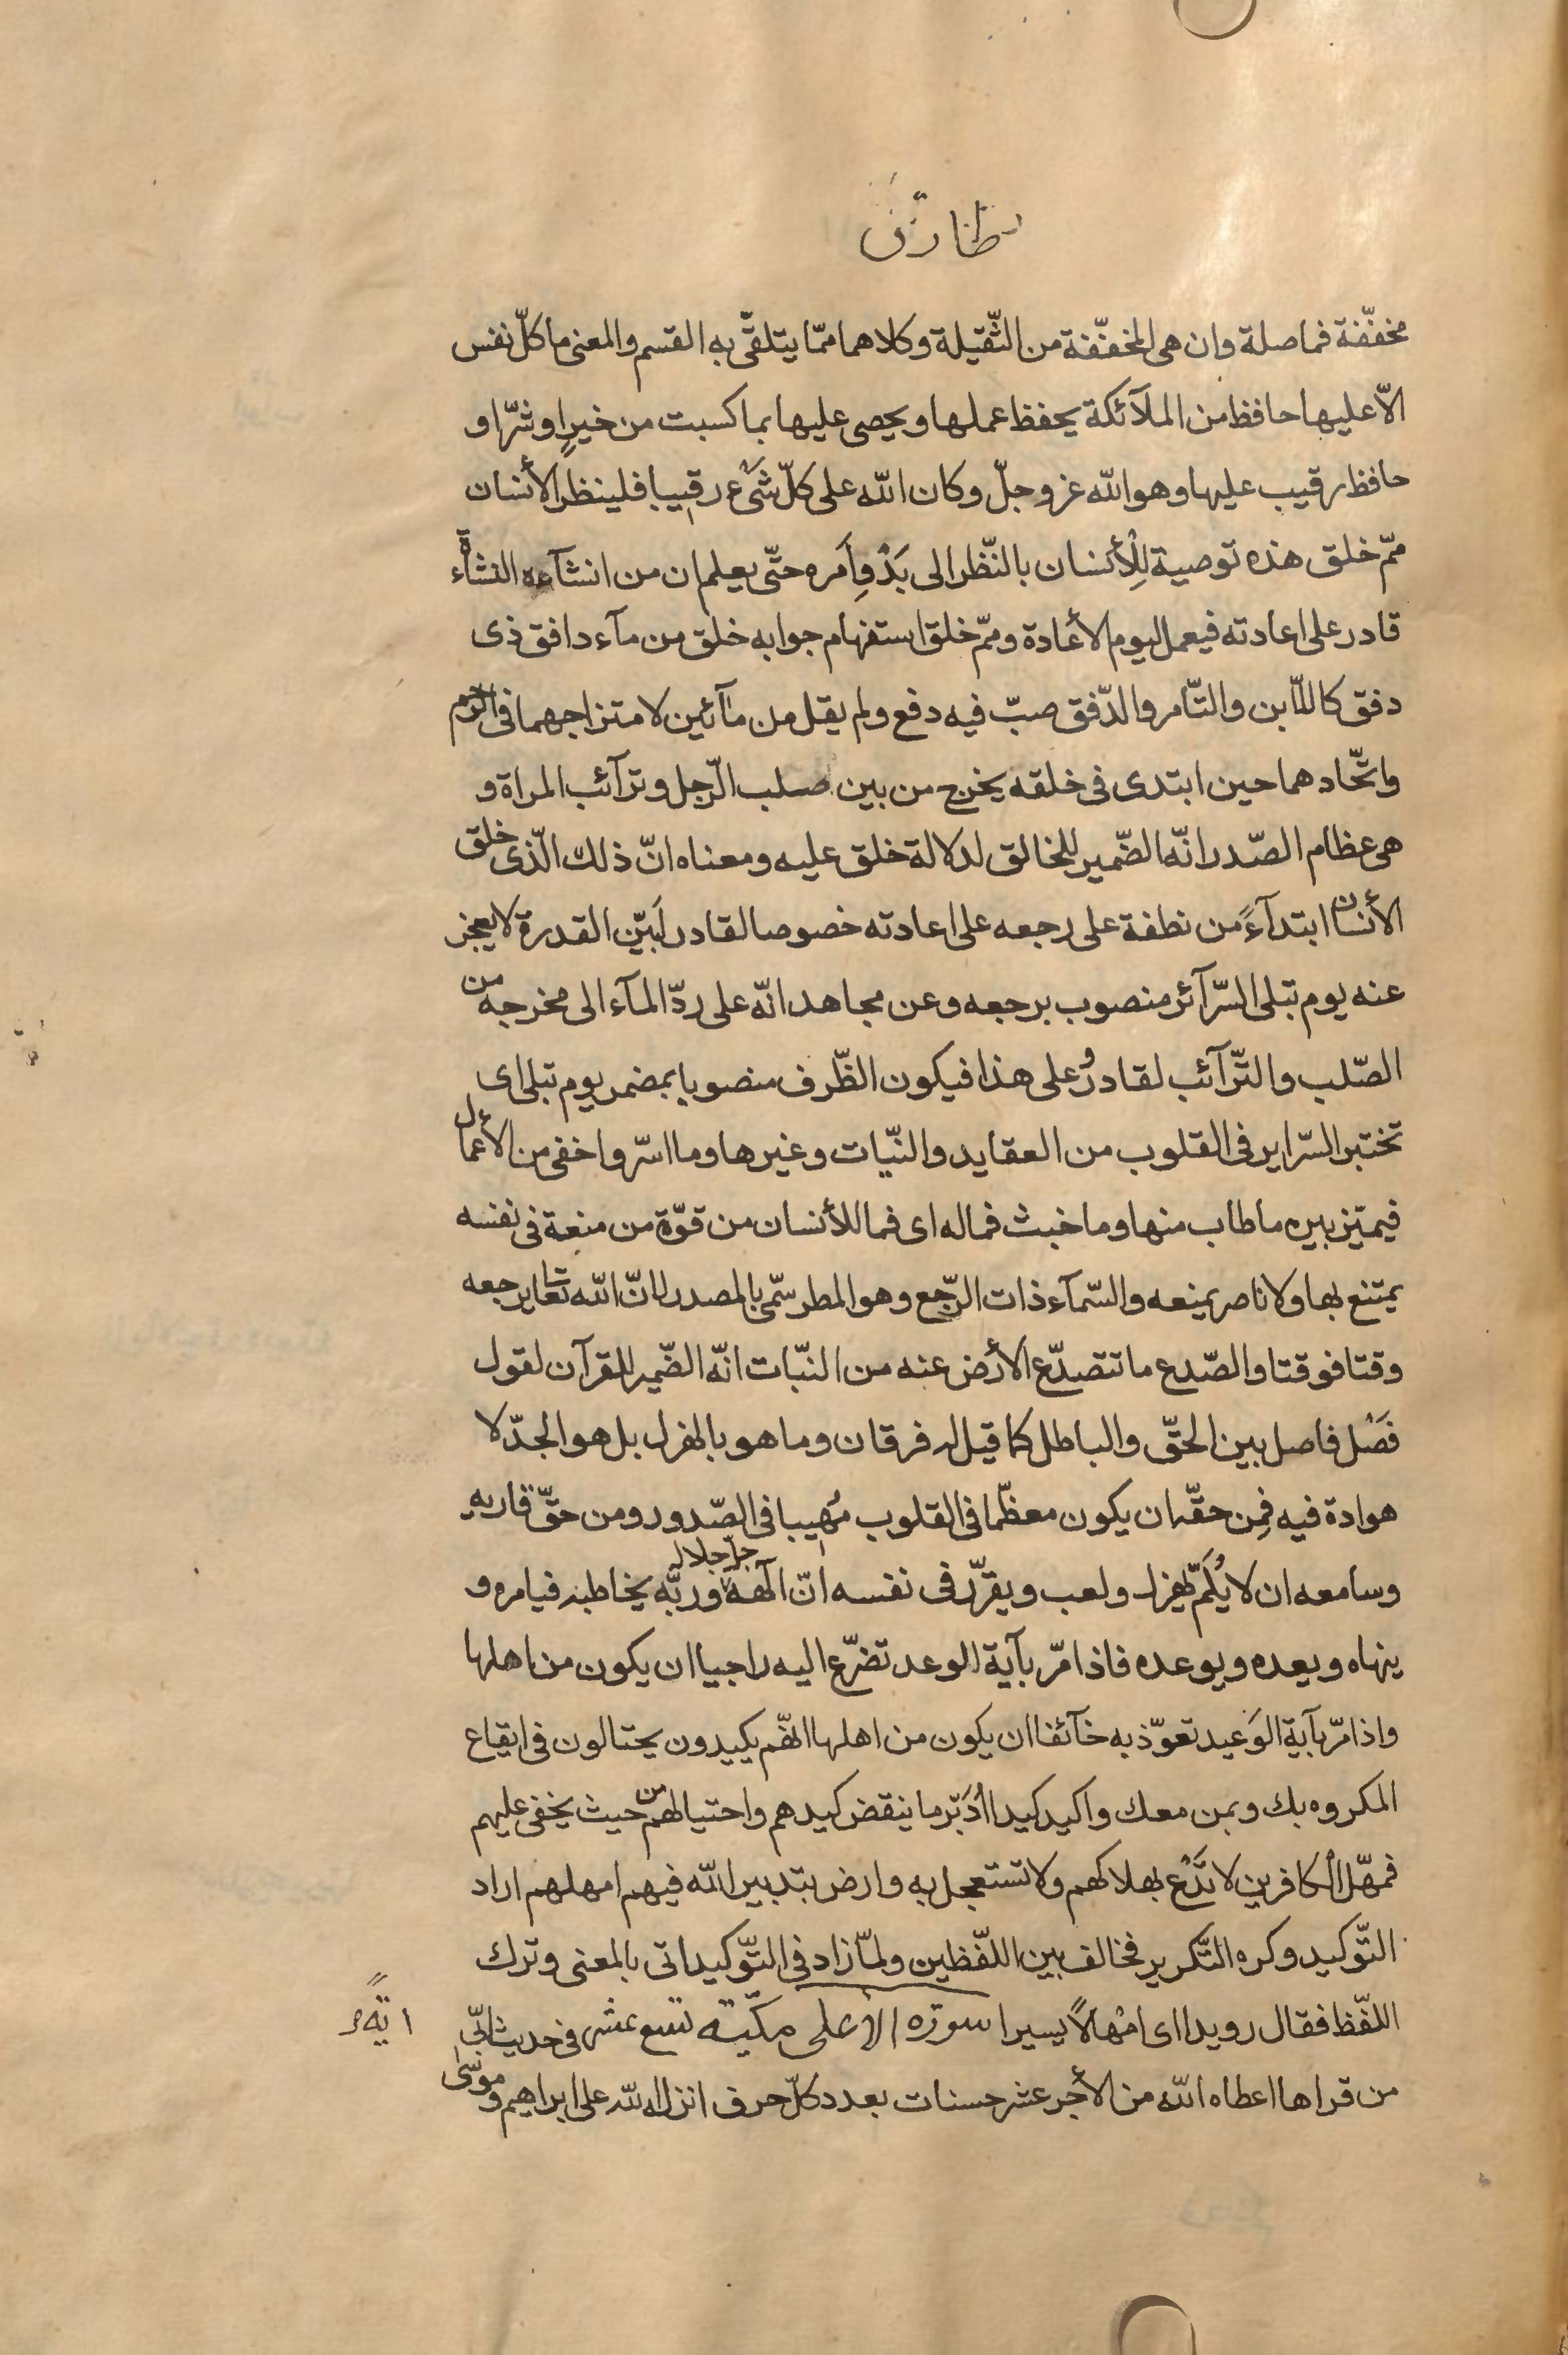 طارق
مخفّفة فما صلة وان هى المخفّفة من الثّقيلة وكلاهما ممّا يتلقّى به القسم والمعنى ما كلّ نفس
الّا عليها حافظ من الملآئكة يحفظ عملها ويحصى عليها بما كسبت من خيرٍ او شرّ او
حافظ رقيب عليها وهو الله عز وجلّ وكان الله على كلّ شَىْء رقيبا فلينظر الأنسان
ممّ خلق هذه توصية لِلْأنسان بالنّظر الى بَدْوِ اَمره حتّى يعلم ان من انشآءه النشأة
قادر على اعادته فيعمل ليوم الأعادة وممّ خلق استفهام جوابه خلق من مآء دافق ذى
دفق كاللّابن والتّامر والدّفق صبّ فيه دفع ولم يقل من مآئين لامتزاجهما فى الرّحم
واتّحادهما حين ابتدى فى خلقه يخرج من بين صلب الرّجل وترآئب المراة و
هى عظام الصّدر انّه الضّمير للخالق لدلالة خلق عليه ومعناه انّ ذلك الّذى خلق
الأنسان ابتدآءً من نطفة على رجعه على اعادته خصوصا لقادر لَبيّن القدرة لا يعجز
عنه يوم تبلى السّرآئر منصوب برجعه وعن مجاهد انّه على ردّ المآء الى مخرجه من
الصّلب والتّرآئب لقادر و على هذا فيكون الظّرف منصوبا بمضمر يوم تبلى اى
تختبر السّراير فى القلوب من العقايد والنيّات وغيرها وما اسرّ واخفى من الأعمال
فيميّز بيره ما طاب منها وما خبث فما له اى فما للأنسان من قوّة من منعة فى نفسه
يمتنع بها ولا ناصر يمنعه والسّمآء ذات الرّجع وهو المطر سمّى بالمصدر لانّ الله تعا يرجعه
وقتا فوقتا والصّدع ما تتصدّع الأرض عنه من النبّات انّه الضّمير للقرآن لقول
فَصْل فاصل بين الحقّ والباطل كما قيل له فرقان وما هو بالهزل بل هو الجدّ لا
هوادة فيه فمِن حقّه ان يكون معظّما فى القلوب مُهيبا فى الصّدور ومن حقّ قاريه
وسامعه ان لا يُلَمّ بهزل ولعب ويقرّر فى نفسه انّ الٓهه جلّ جلاله وربّه يخاطبه فيامره و
ينهاه ويعده ويوعده فاذا مرّ بآية الوعد تضرّع اليه راجيا ان يكون من اهلها
واذا مرّ بآية الوَعيد تعوّذ به خآئفا ان يكون من اهلها انهّم يكيدون يحتالون فى ايقاع
المكروه بك وبمن معك واكيد كيدا اُدَبّر ما ينقض كيدهم واحتيالهم من حيث يخفى عليهم
فمهّل الْكافرين لا تَدْع بهلاكهم ولا تستعجل به وارض بتدبير الله فيهم امهلهم اراد
التّوكيد وكره التّكرير فخالف بين اللّفظين ولمّا زاد فى التّوكيد اتى بالمعنى وترك
اللفّظ فقال رويدا اى امْهالًا يسيرا سورة الاعلى مكيّة تسع عشر فى حديث ابىّ
من قراها اعطاه الله من الأجر عشر حسنات بعدد كلّ حرف انزل الله على ابراهيم وموسٰى